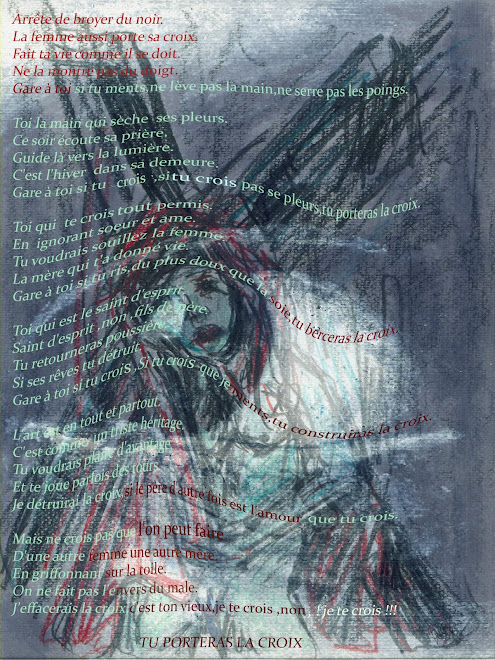 Arrête de broyer du noir.
La femme aussi porte sa croix.
Fait ta vie comme il se doit.
Ne la montre pas du doigt.
Gare à toi si tu ments,ne lève pas la main,ne serre pas les poings.
Toi la main qui sèche ses pleurs.
Ce soir écoute sa prière.
Guide là vers la lumière.
C'est l'hiver dans sa demeure.
Gare à toi si tu crois ,si tu crois pas se pleurs,tu porteras la croix.
Toi qui te crois tout permis.
En ignorant soeur et ame.
Tu voudrais souillez la femme.
La mère qui t'a donné vie.
Gare à toi si tu ris,du plus doux que la soie,tu bèrceras la croix.
Toi qui est le saint d'esprit.
Saint d'esprit ,non ,fils de père.
Tu retourneras poussière.
Si ses rêves tu détruit.
Gare à toi si tu crois ,Si tu crois que je ments,tu construiras la croix.
L'art est en tout et partout.
C'est comme un triste héritage.
Tu voudrais plaire d'avantage.
Et te joue parfois des tours.
Je détruirai la croix,si le père d'autre fois est l'amour que tu crois.
Mais ne crois pas que l'on peut faire
D'une autre femme une autre mère.
En griffonnant sur la toile.
On ne fait pas l'envers du male.
J'effacerais la croix c'est ton vieux,je te crois ,non je te crois !!!
TU PORTERAS LA CROIX